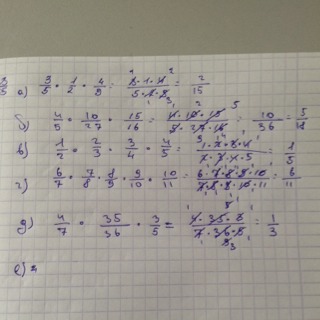 а) 3/5 · 1/2 · 4/9 = 3·1·4 / 5·2·9 = 2/15
б) 4/5 · 10/27 · 15/16 = 4·10·15 / 5·27·16 = 10/36 = 5/18
в) 1/2 · 2/3 · 3/4 · 4/5 = 1·2·3·4 / 2·3·4·5 = 1/5
г) 6/7 · 7/8 · 8/9 · 9/10 · 10/11 = 6·7·8·9·10 / 7·8·9·10·11 = 6/11
д) 4/7 · 35/36 · 3/5 = 4·35·3 / 7·36·5 = 1/3
е)